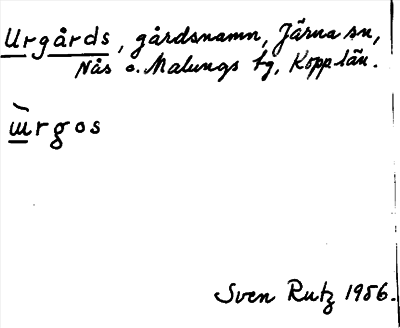 Urgårds, gårdsnamn, Järna sn,
Nås o. Malungs tg, Kopp län.
ɯ̀rgos
Sven Rutz 1956.